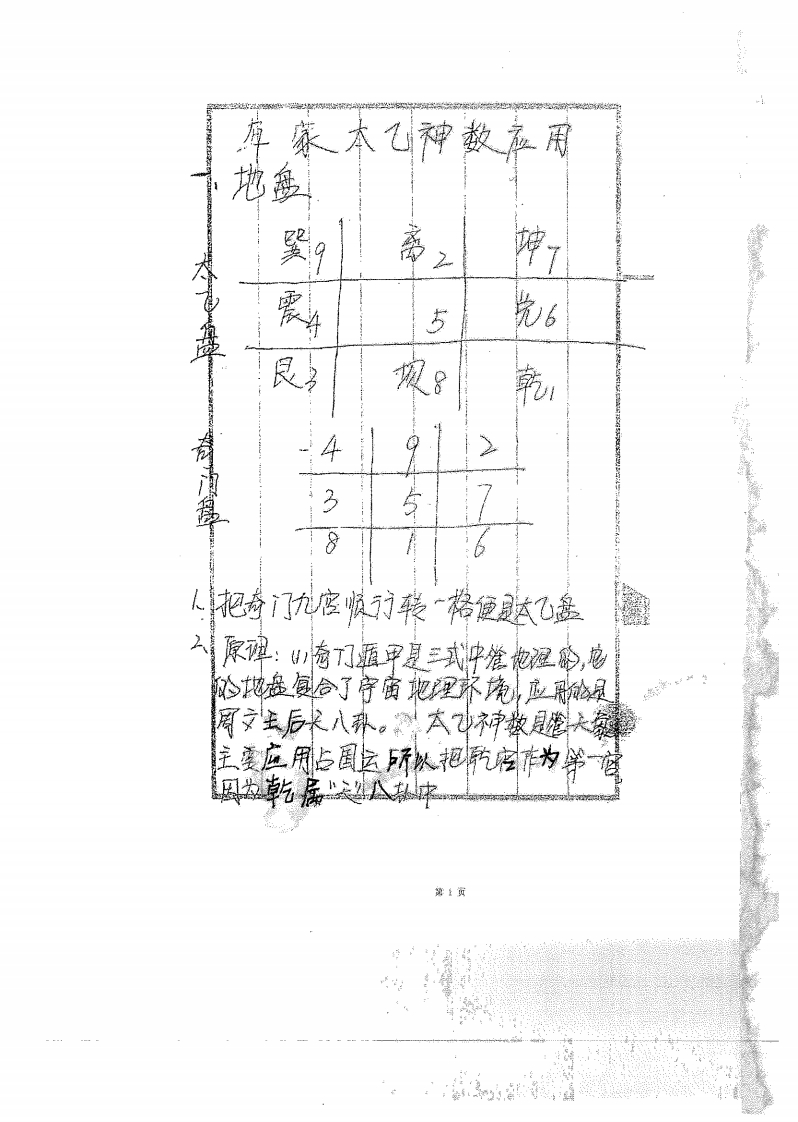 太乙神数应用
一、地盘
太乙盘
巽9 离2 坤7
震4 5 兑6
艮3 坝8 乾1
奇门盘
4 9 2
3 5 7
8 1 6
1、把奇门九宫顺行转一格便是太乙盘
2、原理：(1)奇门遁甲是三式中管地理的,它
的地盘复合了宇宙地理环境,应用的是
周文王后天八卦。 太乙神数是管天象
主要应用占国运所以把乾宫作为第一宫
因为乾属“天”八卦中
第 1 页